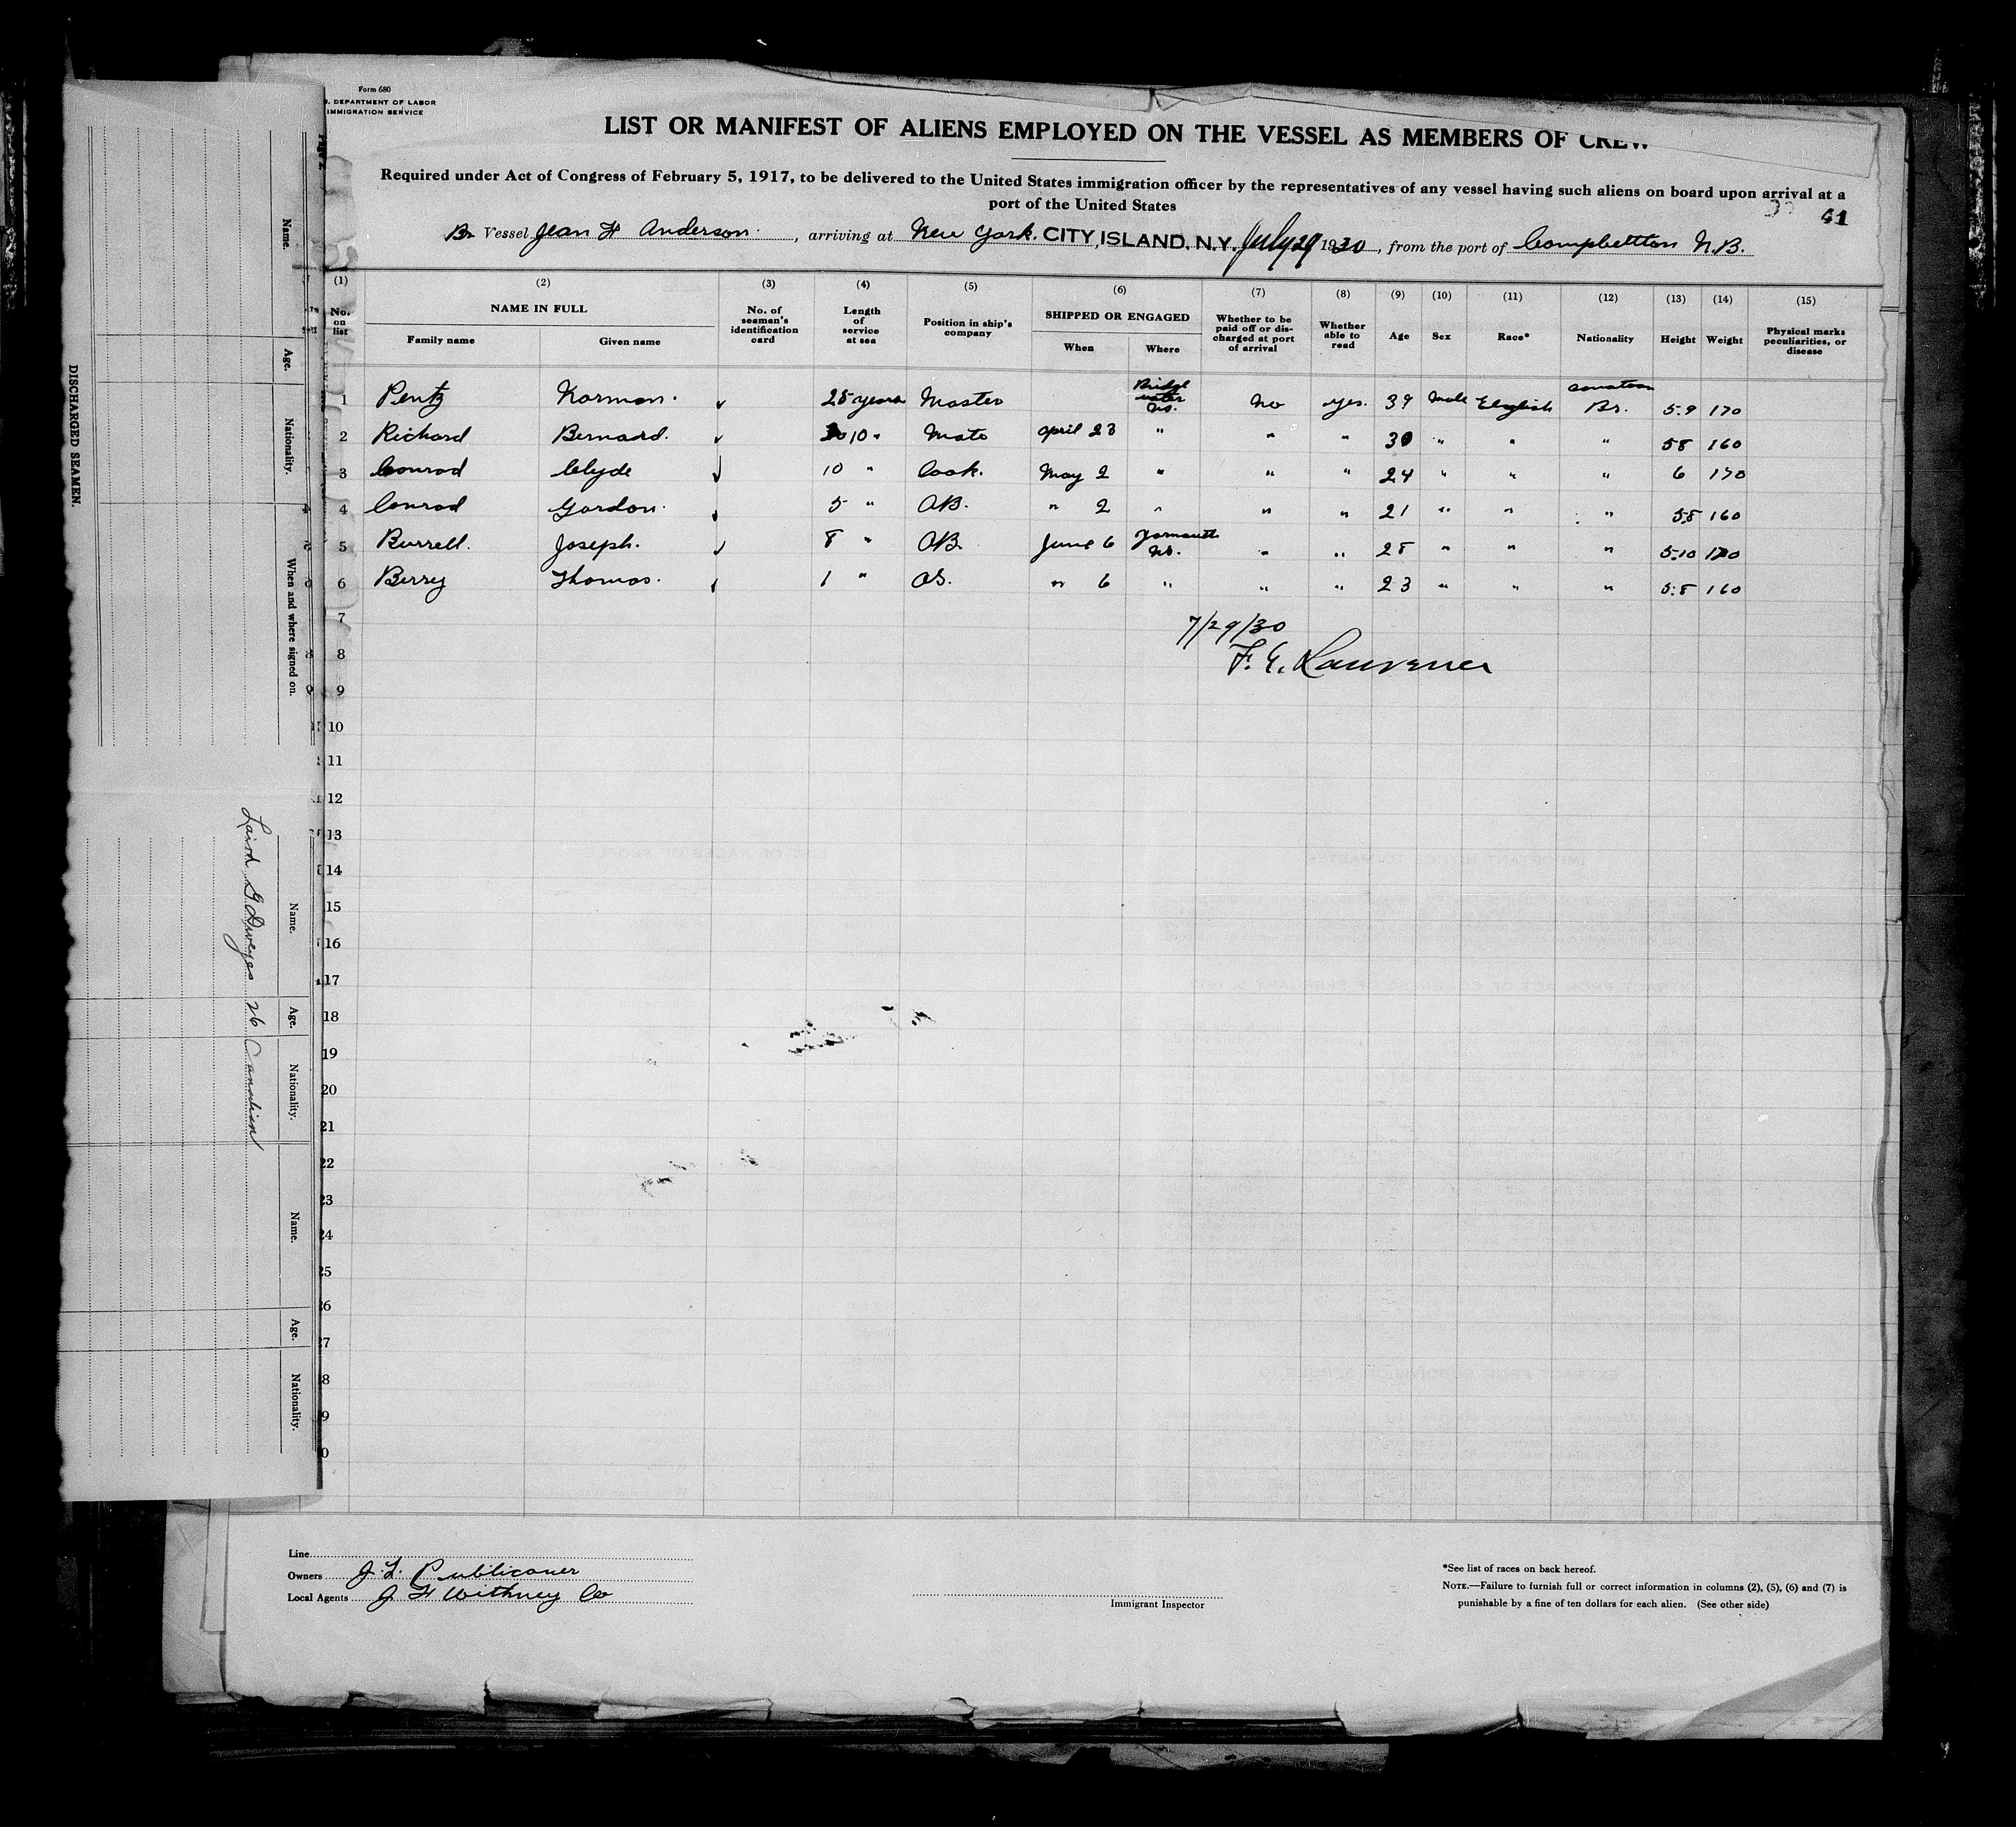 Form 680
S. DEPARTMENT OF LABOR
IMMIGRATION SERVICE
LIST OR MANIFEST OF ALIENS EMPLOYED ON THE VESSEL AS MEMBERS OF CREW
Required under Act of Congress of February 5, 1917, to be delivered to the United States immigration officer by the representatives of any vessel having such aliens on board upon arrival at a
port of the United States
41
Br. Vessel Jean F Anderson, arriving at New York. CITY ISLAND, N.Y. July 29 1930, from the port of Campbellton N.B.
(1) (2) (3) (4) (5) (6) (7) (8) (9) (10) (11) (12) (13) (14) (15)
No. on list NAME IN FULL Family name Given name No. of seaman's identification card Length of service at sea Position in ship's company SHIPPED OR ENGAGED When Where Whether to be paid off or discharged at port of arrival Whether able to read Age Sex Race* Nationality Height Weight Physical marks peculiarities, or disease
1 Pentz Norman. 25 years Master Bridgewater N.S. No yes. 39 Male English Br. 5.9 170
2 Richard Bernard. 10 " Mate April 23 " " " 30 " " " 5 8 160
3 Conrad Clyde 10 " Cook. May 2 " " " 24 " " " 6 170
4 Conrad Gordon. 5 " AB. " 2 " " " 21 " " " 5.8 160
5 Burrell. Joseph. 8 " AB. June 6 Yarmouth N.S. " " 28 " " " 5.10 170
6 Berry Thomas. 1 " OS. " 6 " " " 23 " " " 5.8 160
7
7/29/30
8
F. E. Lawrence
9
10
11
12
13
14
15
16
17
18
19
20
21
22
23
24
25
26
27
28
29
30
Line
Owners J. L. Publicover
Local Agents J F Withney Co
Immigrant Inspector
*See list of races on back hereof.
NOTE.—Failure to furnish full or correct information in columns (2), (5), (6) and (7) is
punishable by a fine of ten dollars for each alien. (See other side)
DISCHARGED SEAMEN.
Name. Age. Nationality. When and where signed on.
Name. Age. Nationality.
Laird G. 26 Canadian
Name. Age. Nationality.